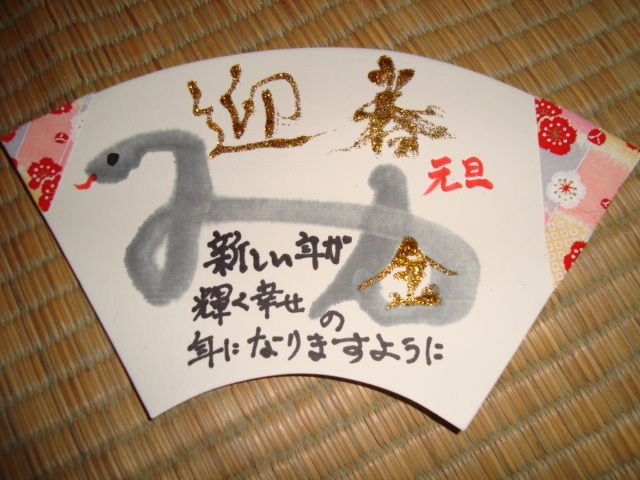 迎春
元旦
み
新しい年が
金
輝く幸せの
年になりますように